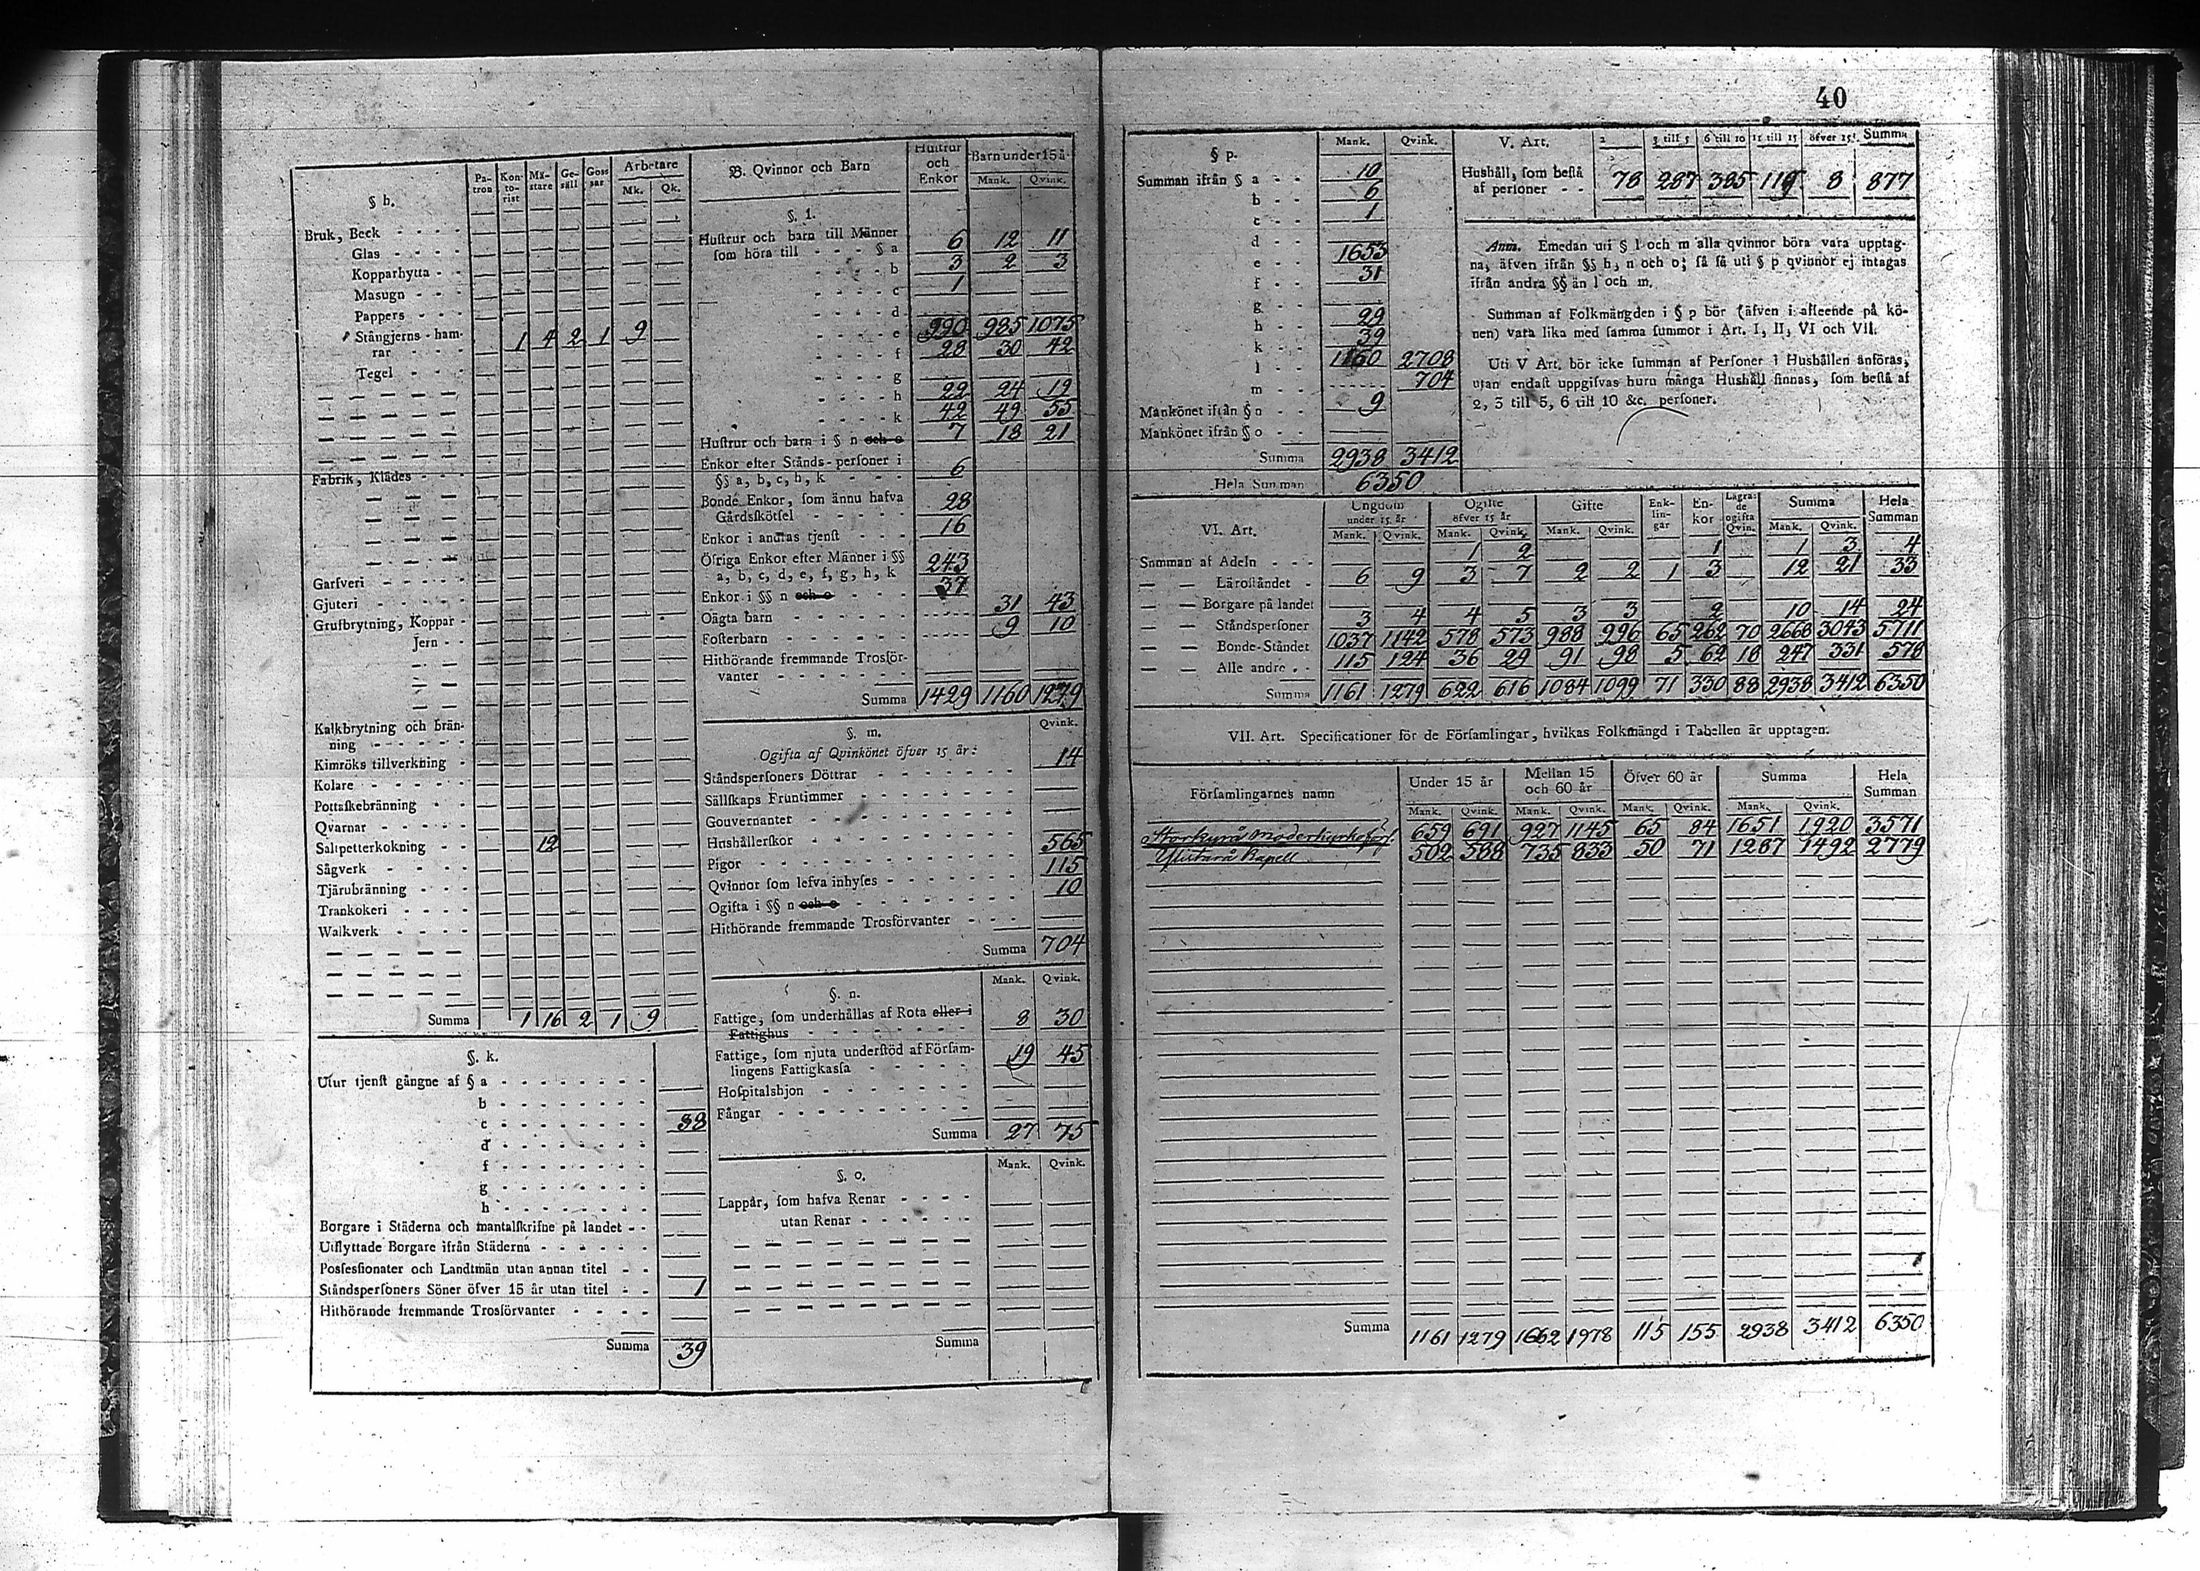 40
§ h.
Patron Kontorist Mästare Gesäll Gossar Arbetare
Mk. Qk.
Bruk, Beck - - - -
Glas - - - -
Kopparhytta - -
Masugn - - -
Pappers - - -
Stångjerns-ham- 1 4 2 1 9
rar - - - -
Tegel - - - -
Fabrik, Klädes - - -
Garfveri - - - - -
Gjuteri - - - - -
Grufbrytning, Koppar -
Jern - -
Kalkbrytning och brän-
ning - - - - -
Kimröks tillverkning -
Kolare - - - - -
Pottaskebränning - -
Qvarnar - - - - -
Saltpetterkokning - - 12
Sågverk - - - -
Tjärubränning - - -
Trankokeri - - - -
Walkverk - - - -
Summa 1 16 2 1 9
§. k.
Utur tjenst gångne af § a - - - - - - -
b - - - - - - -
c - - - - - - - 38
d - - - - - - -
f - - - - - - -
g - - - - - - -
h - - - - - - -
Borgare i Städerna och mantalskrifne på landet - -
Utflyttade Borgare ifrån Städerna - - - - - -
Possessionater och Landtmän utan annan titel - -
Ståndspersoners Söner öfver 15 år utan titel - - 1
Hithörande fremmande Trosförvanter - - - -
Summa 39
B. Qvinnor och Barn
Hustrur och Enkor Barn under 15 å.
Mank. Qvink.
§. l.
Hustrur och barn till Männer
som höra till - - - § a 6 12 11
- - - - b 3 2 3
- - - - c 1
- - - - d
- - - - e 990 985 1075
- - - - f 28 30 42
- - - - g
- - - - h 22 24 19
- - - - k 42 49 55
Hustrur och barn i § n och o 7 18 21
Enkor efter Stånds-personer i
§§ a, b, c, h, k - - - 6
Bonde Enkor, som ännu hafva
Gårdsskötsel - - - - - 28
Enkor i andras tjenst - - - 16
Öfriga Enkor efter Männer i §§
a, b, c, d, e, f, g, h, k 243
Enkor i §§ n och o - - - - 37
Oägta barn - - - - - - 31 43
Fosterbarn - - - - - - 9 10
Hithörande fremmande Trosför-
vanter - - - - - - -
Summa 1429 1160 1279
§. m. Qvink.
Ogifta af Qvinkönet öfver 15 år:
Ståndspersoners Döttrar - - - - - - - 14
Sällskaps Fruntimmer - - - - - - -
Gouvernanter - - - - - - - - -
Hushållerskor - - - - - - - - -
Pigor - - - - - - - - - - - 565
Qvinnor som lefva inhyses - - - - - - - 115
Ogifta i §§ n och o - - - - - - - - 10
Hithörande fremmande Trosförvanter - - -
Summa 704
Mank. Qvink.
§. n.
Fattige, som underhållas af Rota eller i 8 30
Fattighus - - - - - - -
Fattige, som njuta understöd af Försam- 19 45
lingens Fattigkassa - - - - -
Hospitalshjon - - - - - - - -
Fångar - - - - - - - - - -
Summa 27 75
Mank. Qvink.
§. o.
Lappar, som hafva Renar - - - -
utan Renar - - - - - -
Summa
§ p. Mank. Qvink.
Summan ifrån § a - - 10
b - - 6
c - - 1
d - -
e - - 1653
f - - 31
g - -
h - - 29
k - - 39
l - - 1160 2708
m - - 704
Mankönet ifrån § o - - 9
Mankönet ifrån § o - -
Summa 2938 3412
Hela Summan 6350
V. Art. 2 3 till 5 6 till 10 11 till 15 öfver 15. Summa
Hushåll, som bestå
af personer - - 78 287 385 119 8 877
Anm. Emedan uti § l och m alla qvinnor böra vara upptag-
na, äfven ifrån §§ h, n och o; så få uti § p qvinnor ej intagas
ifrån andra §§ än l och m.
Summan af Folkmängden i § p bör (äfven i afseende på kö-
nen) vara lika med samma summor i Art. I, II, VI och VII.
Uti V Art. bör icke summan af Personer i Hushållen anföras,
utan endast uppgifvas huru många Hushåll finnas, som bestå af
2, 3 till 5, 6 till 10 &c. personer.
VI. Art.
Ungdom under 15 år Ogifte öfver 15 år Gifte Enklingar Enkor Lägrade ogifta Qvin. Summa Hela Summan
Mank. Qvink. Mank. Qvink. Mank. Qvink. Mank. Qvink.
Summan af Adeln - - - 1 2 1 1 3 4
— — Läroståndet - 6 9 3 7 2 2 1 3 12 21 33
— — Borgare på landet
— — Ståndspersoner 3 4 4 5 3 3 2 10 14 24
— — Bonde-Ståndet 1037 1142 578 573 988 996 65 262 70 2668 3043 5711
— — Alle andre - - 115 124 36 29 91 98 5 62 18 247 331 578
Summa 1161 1279 622 616 1084 1099 71 330 88 2938 3412 6350
VII. Art. Specificationer för de Församlingar, hvilkas Folkmängd i Tabellen är upptagen.
Församlingarnes namn Under 15 år Mellan 15 och 60 år Öfver 60 år Summa Hela Summan
Mank. Qvink. Mank. Qvink. Mank. Qvink. Mank. Qvink.
Storkyrå moderkyrkoförs. 659 691 927 1145 65 84 1651 1920 3571
Ylistarå Kapell 502 588 735 833 50 71 1287 1492 2779
Summa 1161 1279 1662 1978 115 155 2938 3412 6350